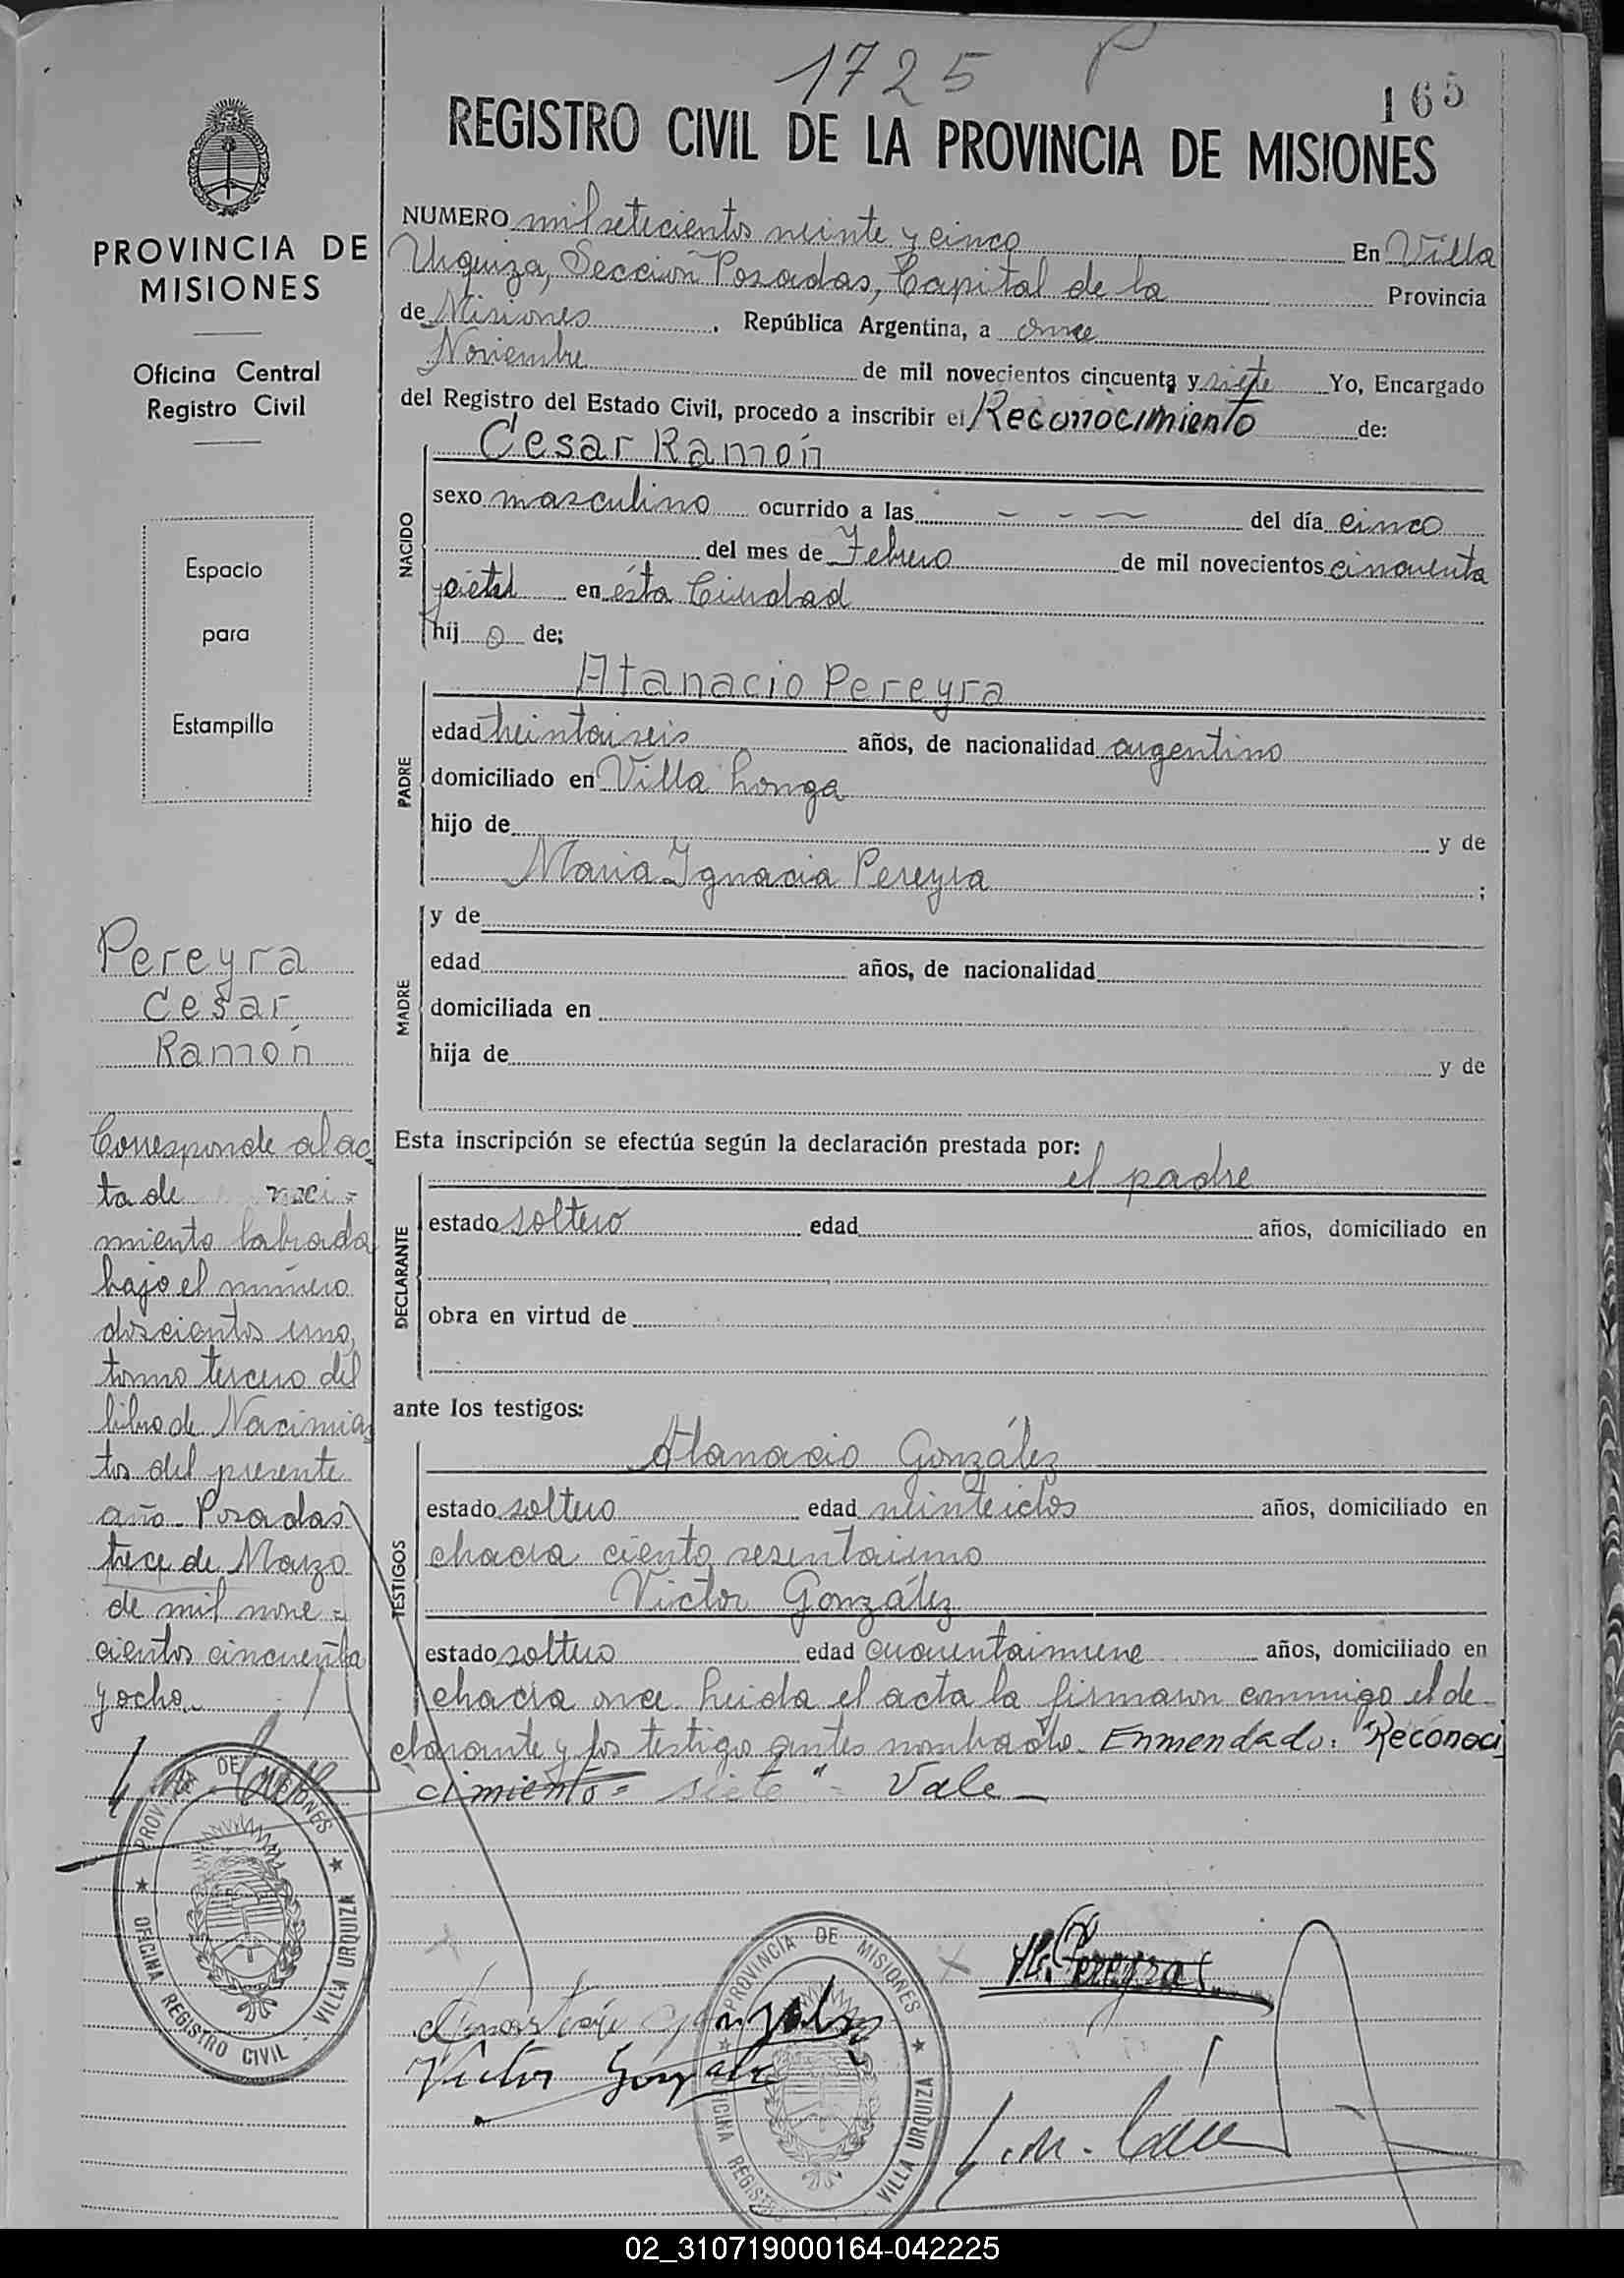 1725 P
165
REGISTRO CIVIL DE LA PROVINCIA DE MISIONES
PROVINCIA DE
MISIONES
Oficina Central
Registro Civil
Espacio
para
Estampilla
NUMERO mil setecientos veinte y cinco En Villa
Urquiza, Sección Posadas, Capital de la Provincia
de Misiones. República Argentina, a once
Noviembre de mil novecientos cincuenta y siete Yo, Encargado
del Registro del Estado Civil, procedo a inscribir el Reconocimiento de:
NACIDO
Cesar Ramón
sexo masculino ocurrido a las - - - del día cinco
del mes de Febrero de mil novecientos cincuenta
en ésta Ciudad
hij o de:
PADRE
Atanacio Pereyra
edad treintaiseis años, de nacionalidad argentino
domiciliado en Villa Longa
hijo de y de
Maria Ignacia Pereyra ;
MADRE
y de
edad años, de nacionalidad
domiciliada en
hija de y de
Esta inscripción se efectúa según la declaración prestada por:
DECLARANTE
el padre
estado soltero edad años, domiciliado en
obra en virtud de
ante los testigos:
TESTIGOS
Atanacio González
estado soltero edad veinteidos años, domiciliado en
chacra ciento sesentaiuno
Victor González
estado soltero edad cuarentainueve años, domiciliado en
chacra once. Leida el acta la firmaron conmigo el de-
clarante y los testigo antes nombrado. Enmendado: "Reconoci
cimiento = siete" = Vale
Pereyra
Cesar
Ramón
Corresponde al ac
ta de naci-
miento labrada
bajo el número
doscientos uno,
tomo tercero del
libro de Nacimien
tos del presente
año. Posadas
trece de Marzo
de mil nove=
cientos cincuenta
y ocho.
PROVINCIA DE MISIONES
OFICINA REGISTRO CIVIL - VILLA URQUIZA
Pereyra
Gonzalez
Victor Gonzalez
PROVINCIA DE MISIONES
OFICINA REGIST VILLA URQUIZA
02_310719000164-042225